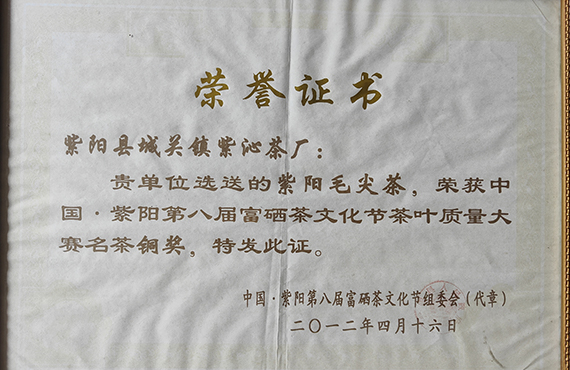 荣誉证书
紫阳县城关镇紫沁茶厂：
贵单位选送的紫阳毛尖茶，荣获中
国·紫阳第八届富硒茶文化节茶叶质量大
赛名茶铜奖，特发此证。
中国·紫阳第八届富硒茶文化节组委会（代章）
二〇一二年四月十六日